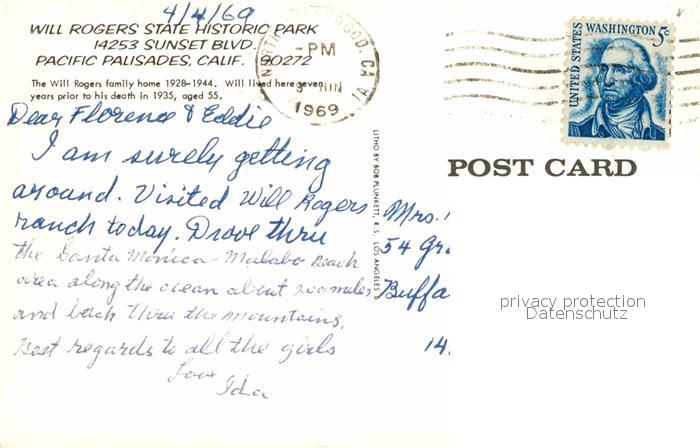 4/4/69
WILL ROGERS STATE HISTORIC PARK
14253 SUNSET BLVD.
PACIFIC PALISADES, CALIF. 90272
The Will Rogers family home 1928-1944. Will lived here seven
years prior to his death in 1935, aged 55.
Dear Florence & Eddie
I am surely getting
around. Visited Will Rogers
ranch today. Drove thru
the Santa Monica-Malabo Beach
area along the ocean about 200 miles
and back thru the mountains.
Best regards to all the girls
Love
Ida
NORTH HOLLYWOOD, CA
-PM
JUN
1969
UNITED STATES
WASHINGTON 5c
LITHO BY BOB PLUNKETT, LOS ANGELES
POST CARD
Mrs.
54 Gr
Buffa
14
privacy protection
Datenschutz